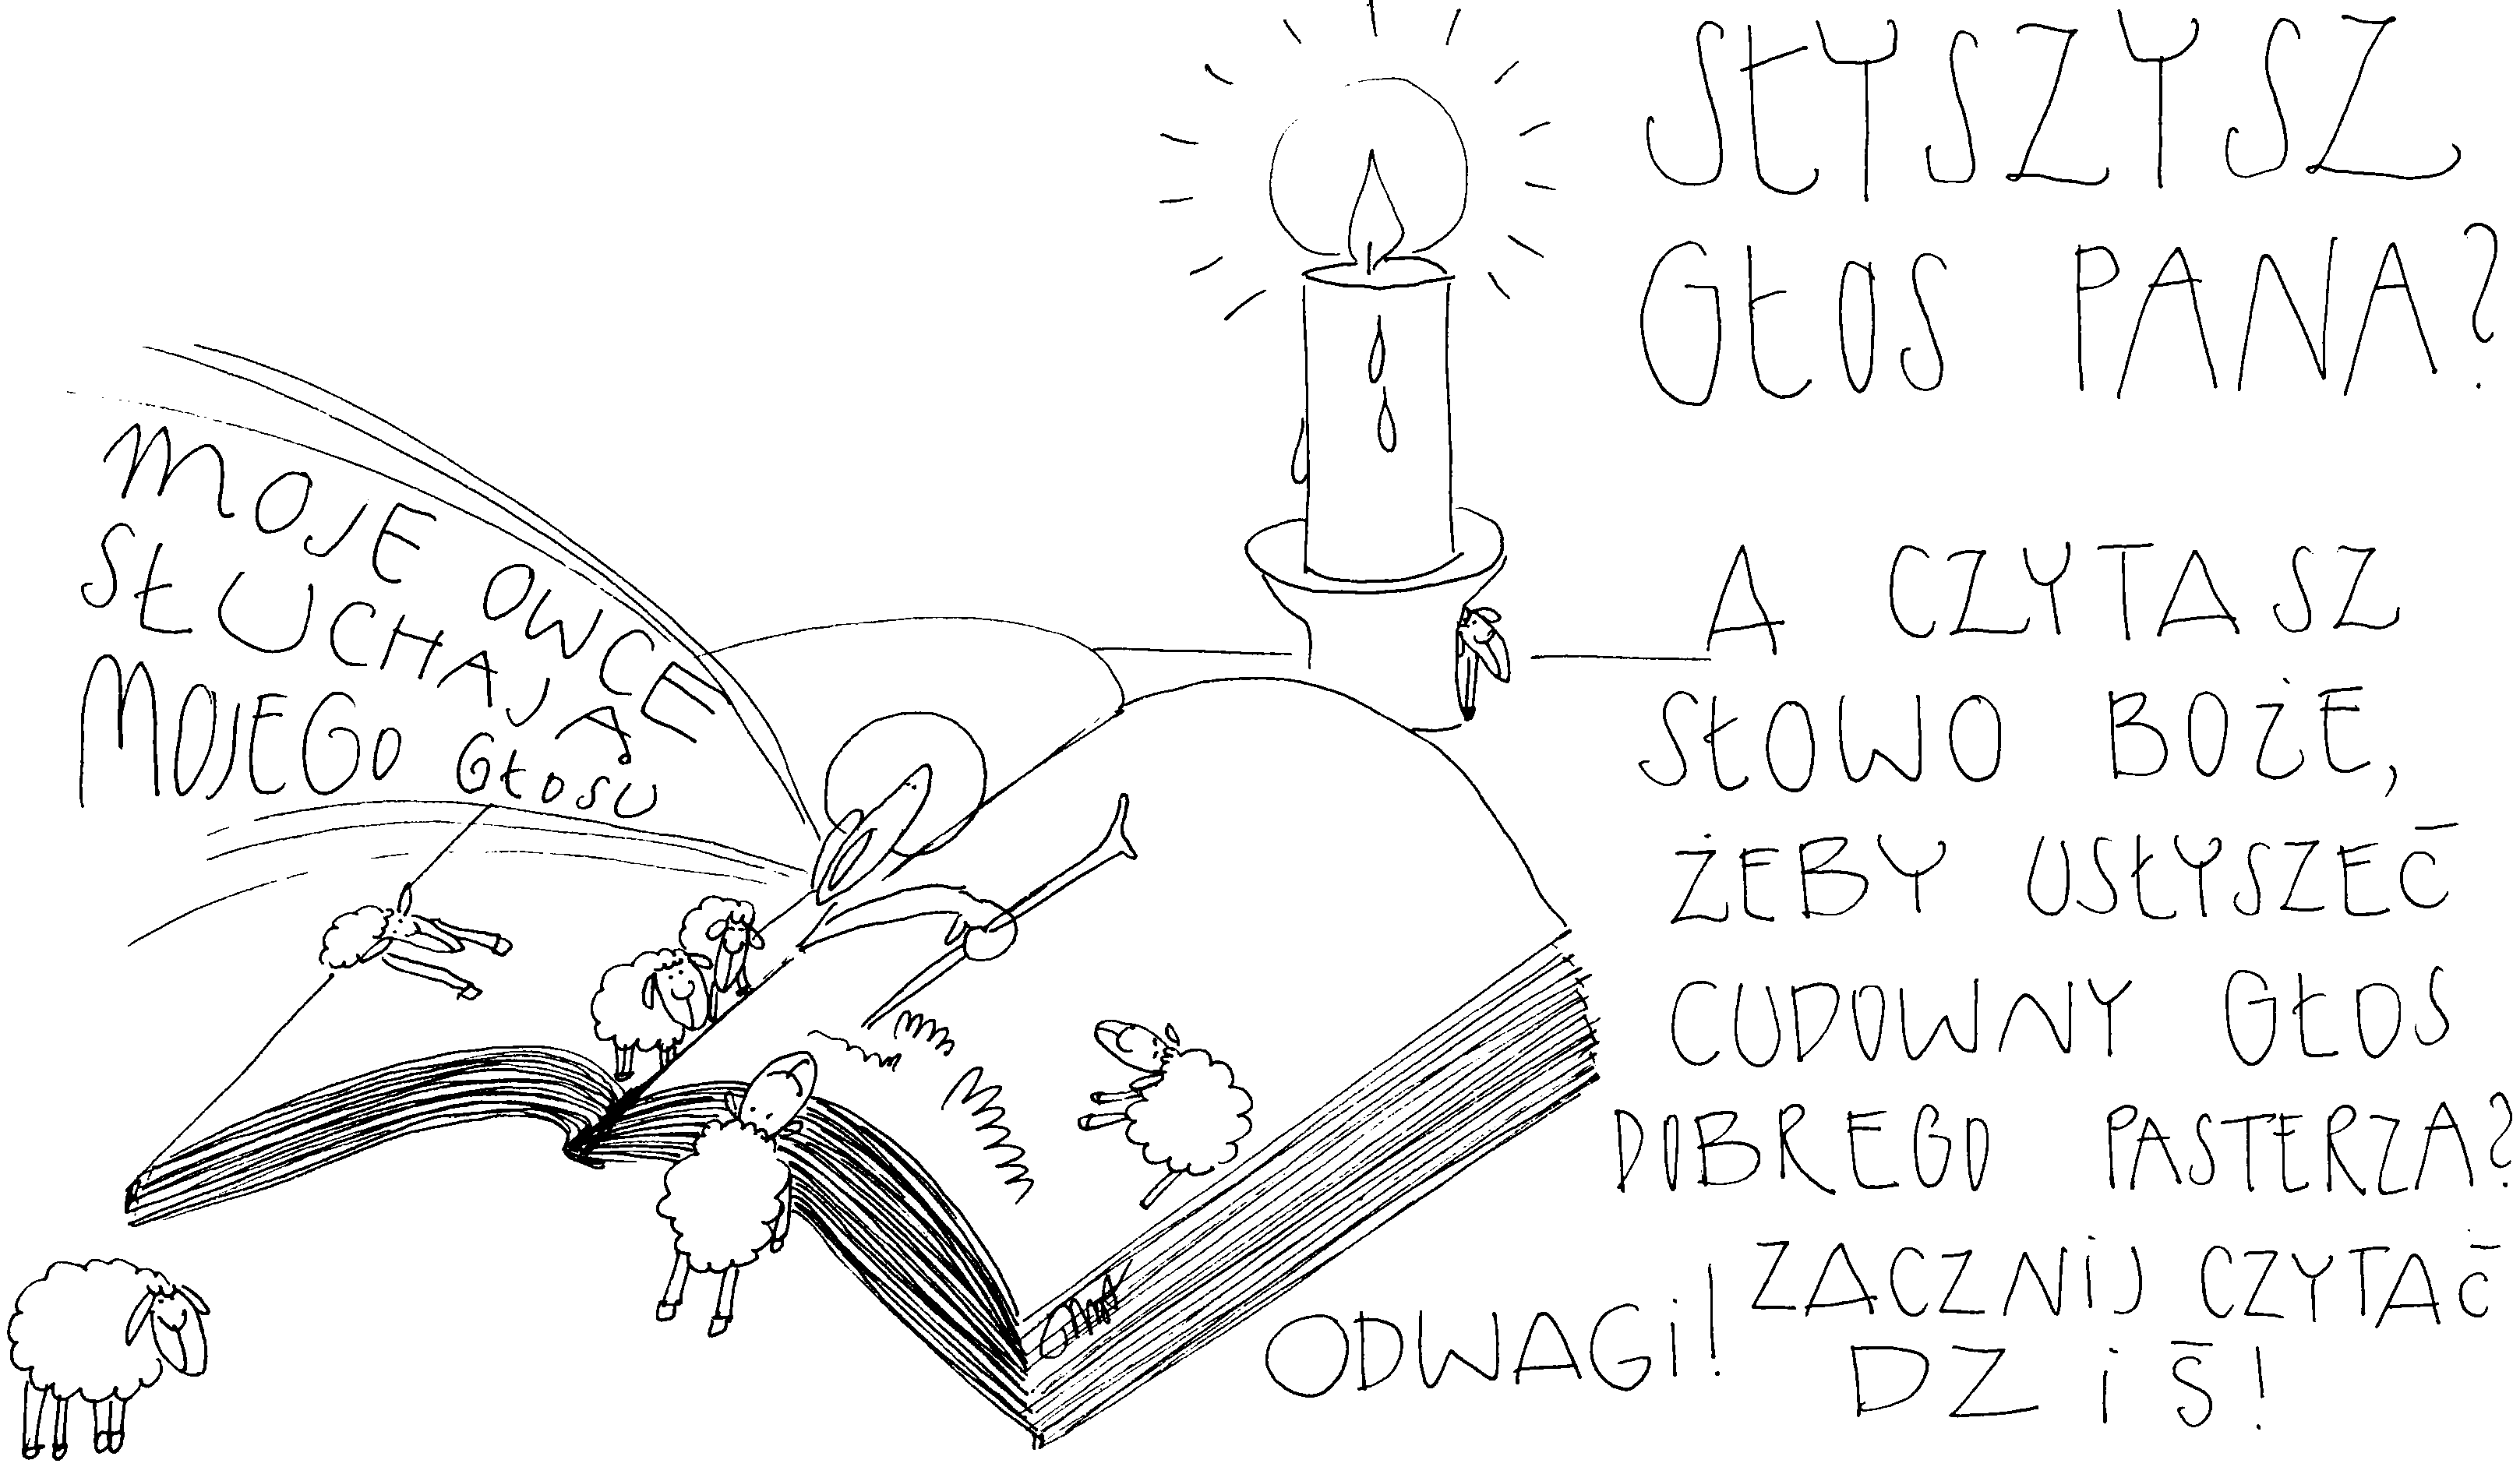 SŁYSZYSZ
GŁOS PANA?
MOJE OWCE
SŁUCHAJĄ
MOJEGO GŁOSU
A CZYTASZ
SŁOWO BOŻE,
ŻEBY USŁYSZEĆ
CUDOWNY GŁOS
DOBREGO PASTERZA?
ODWAGI! ZACZNIJ CZYTAĆ
DZIŚ!